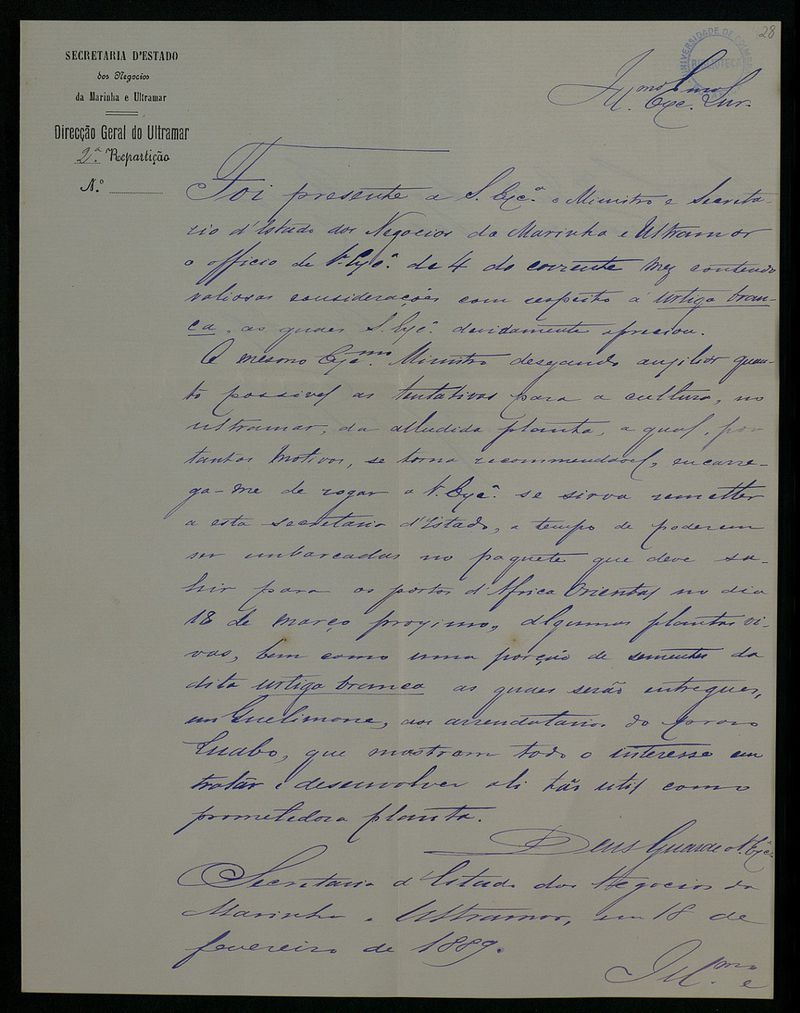 28
UNIVERSIDADE DE COIMBRA
BIBLIOTECA
SECRETARIA D'ESTADO
dos Negocios
da Marinha e Ultramar
Direcção Geral do Ultramar
2.ª Repartição
N.º
Ill.mo Exc. Snr.
Foi presente a S. Exc.ª o Ministro e Secreta-
rio d'Estado dos Negocios da Marinha e Ultramar
o officio de V. Exc.ª de 4 do corrente mez contendo
valiosas considerações com respeito á Urtiga bran-
ca, as quaes S. Exc.ª devidamente apreciou.
O mesmo Exc.mo Ministro desejando auxiliar quan-
to possivel as tentativas para a cultura, no
ultramar, da alludida planta, a qual, por
tantos motivos, se torna recommendavel, encarre-
ga-me de rogar a V. Exc.ª se sirva remetter
a esta secretaria d'Estado, a tempo de poderem
ser embarcadas no paquete que deve sa-
hir para os portos d'Africa Oriental no dia
18 de março proximo, algumas plantas vi-
vas, bem como uma porção de sementes da
dita urtiga branca as quaes serão entregues,
em Quelimane, aos arrendatarios do prazo
Luabo, que mostram todo o interesse em
tratar e desenvolver ali tão util como
prometedora planta.
Deus Guarde a V. Exc.ª
Secretaria d'Estado dos Negocios da
Marinha e Ultramar, em 18 de
fevereiro de 1889.
Ill.mo e